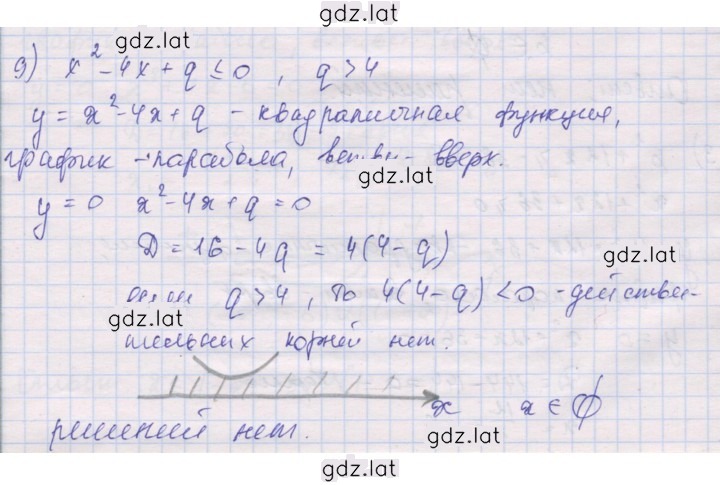 gdz.lat
gdz.lat
д) x² - 4x + q ≤ 0 , q > 4
y = x² - 4x + q - квадратичная функция,
график - парабола, ветви - вверх.
gdz.lat
y = 0 x² - 4x + q = 0
D = 16 - 4q = 4(4 - q)
gdz.lat
если q > 4 , то 4(4 - q) < 0 - действи-
gdz.lat
тельных корней нет.
x x ∈ ∅
решений нет.
gdz.lat
gdz.lat